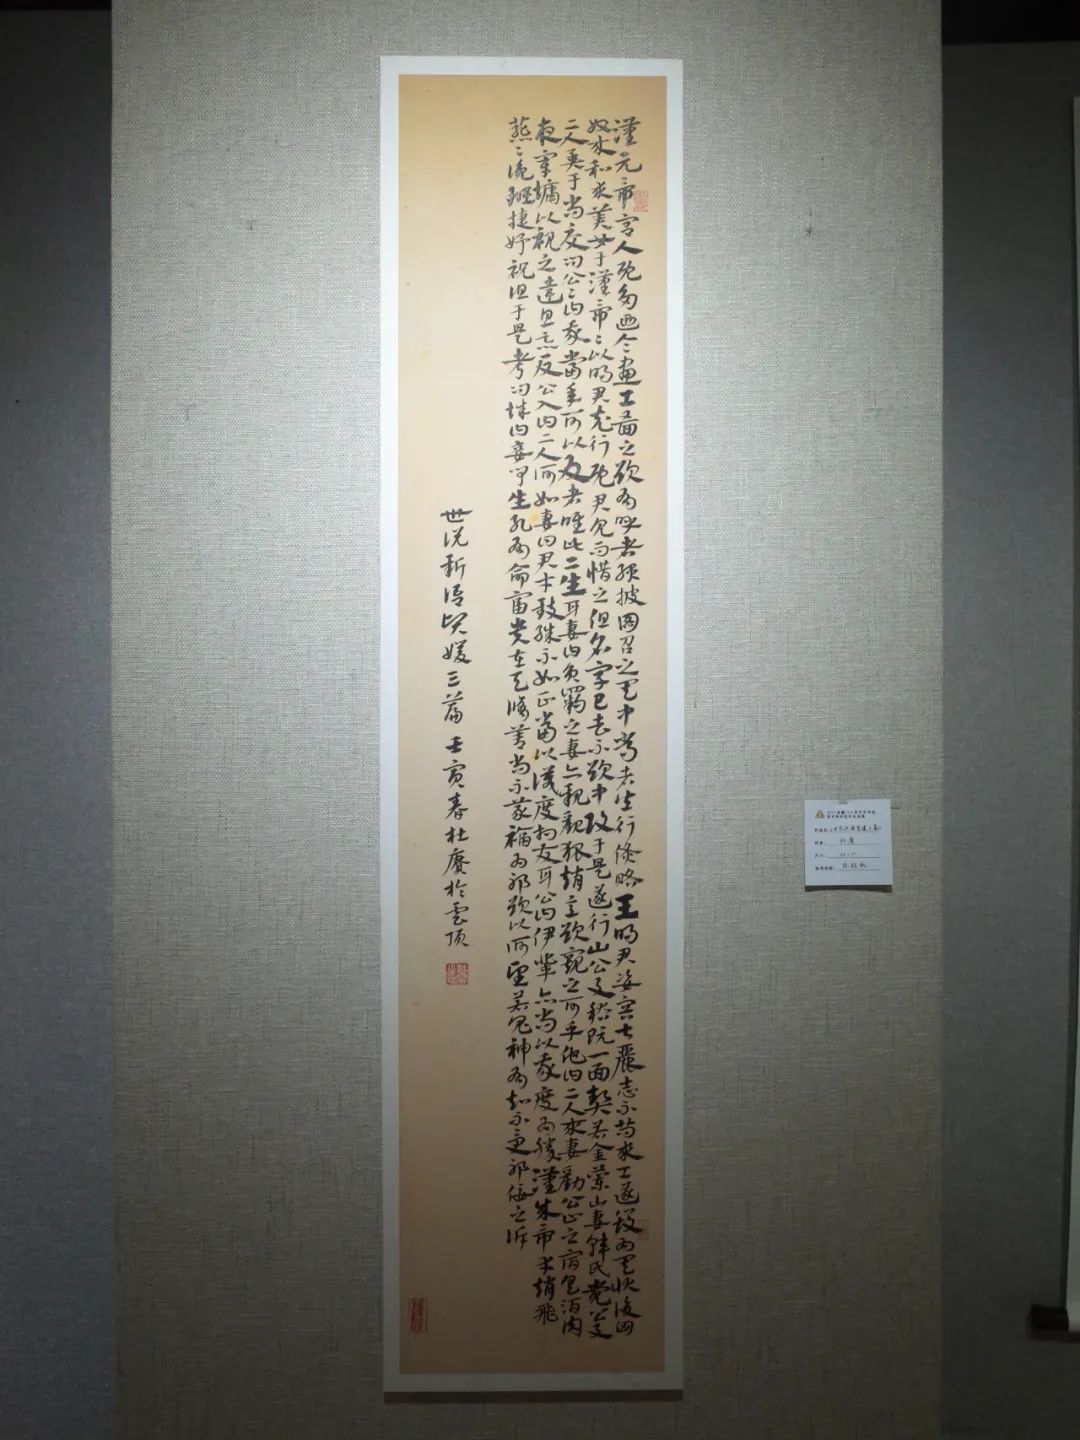 漢元帝宮人既多迺令畫工圖之欲有呼者輒披圖召之其中常者皆行貨賂王明君姿容甚麗志不苟求工遂毀為其狀後匈
奴來和求美女于漢帝〻以明君充行既君見而惜之但名字已去不欲中改于是遂行山公與嵇阮一面契若金蘭山妻韓氏覺公與
二人異于常交問公〻曰我當年可以友者唯此二生耳妻曰負羈之妻亦親觀狐趙意欲窺之可乎他日二人來妻勸公止之宿具酒肉
夜穿墉以視之達旦忘反公入曰二人何如妻曰君才致殊不如正當以識度相友耳公曰伊輩亦常以我度為勝漢成帝幸趙飛
燕〻讒班婕妤祝詛于是考問辭曰妾聞生死有命富貴在天脩善尚不蒙福為邪欲以何望若鬼神有知不受邪佞之訴
世說新語賢媛三篇 壬寅春杜賡於雲頂